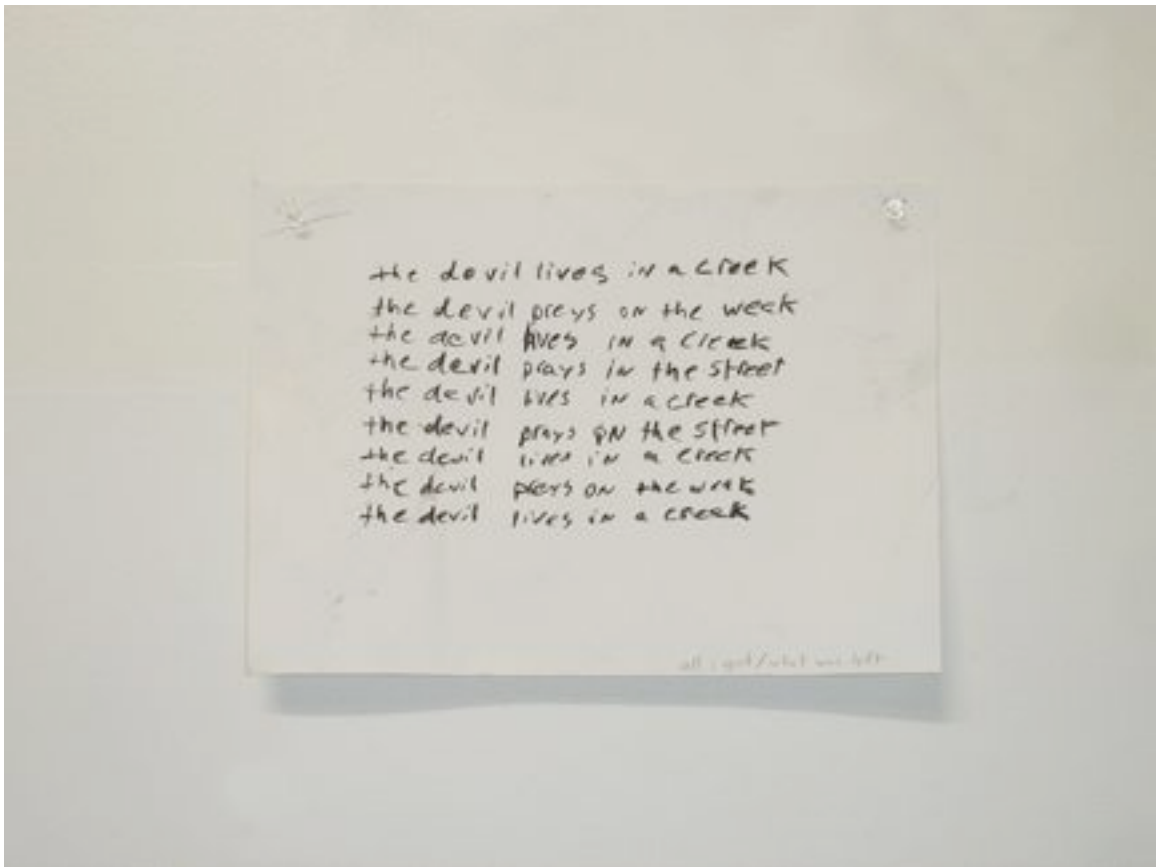 the devil lives in a creek
the devil preys on the week
the devil lives in a creek
the devil prays in the street
the devil lives in a creek
the devil prays on the street
the devil lives in a creek
the devil preys on the weak
the devil lives in a creek
all i got/what was left